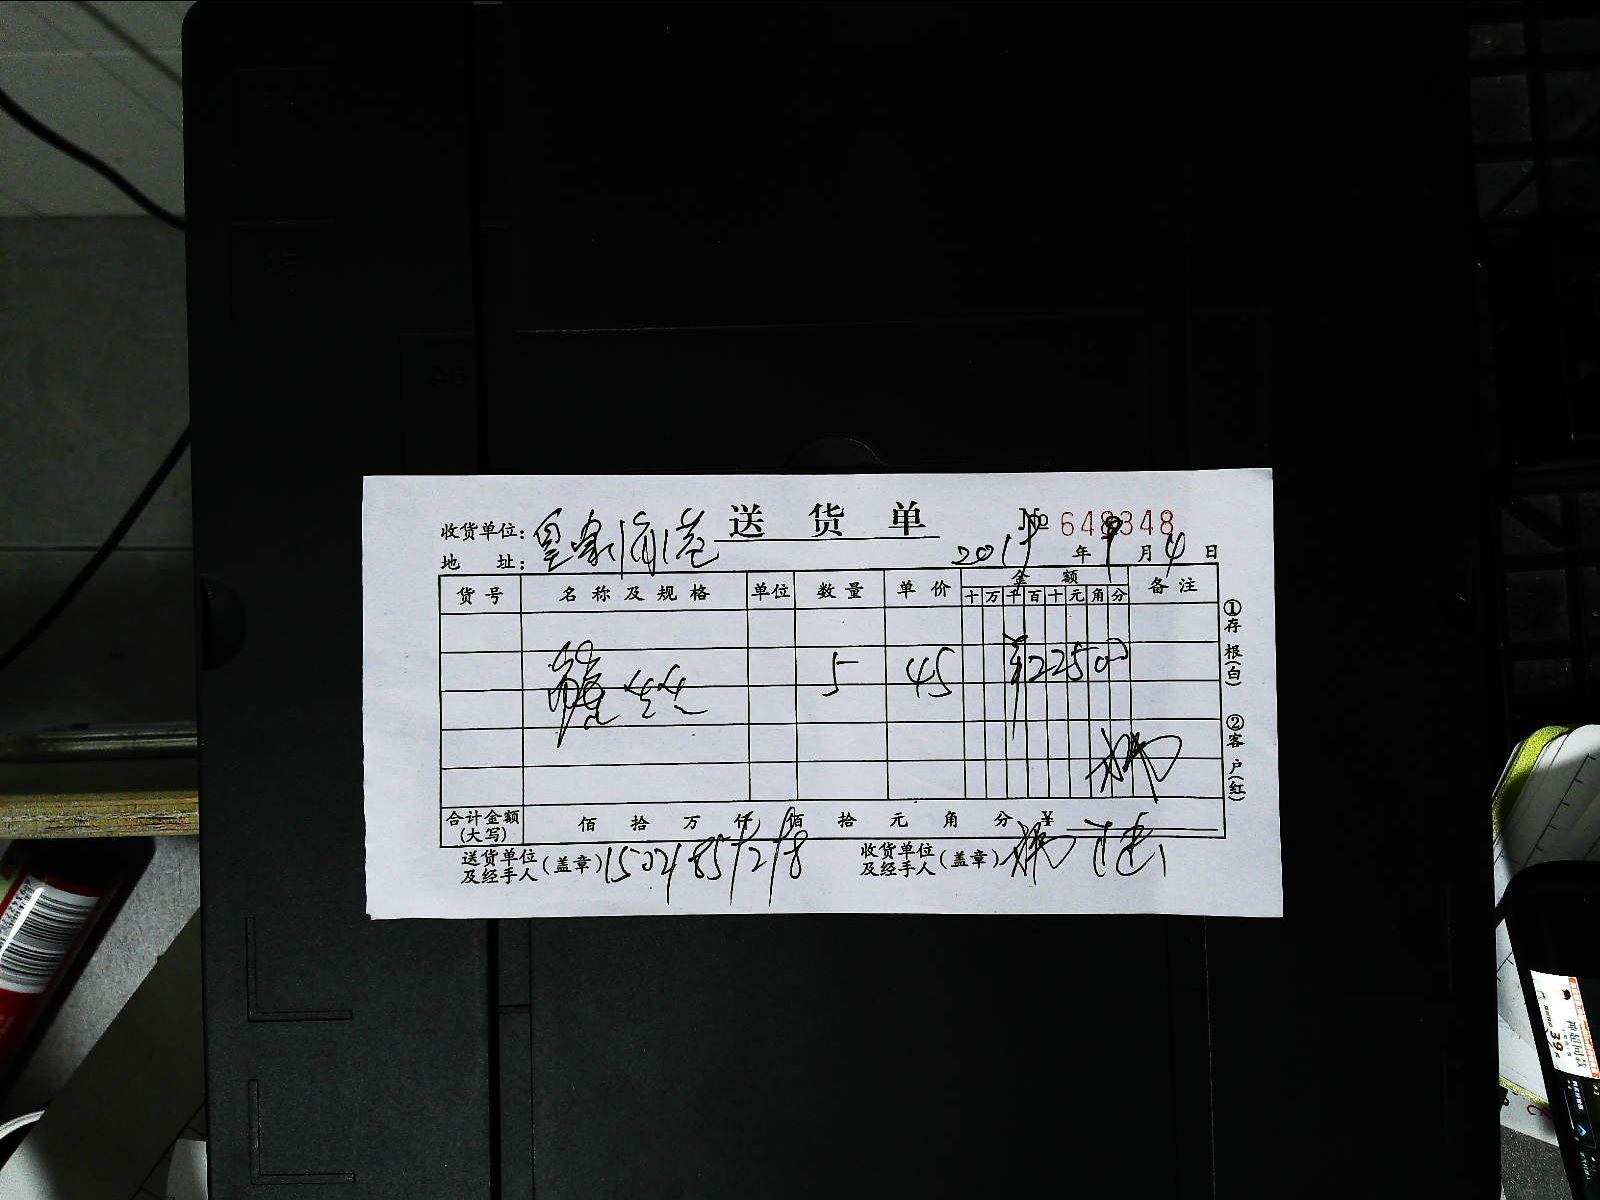 送货单
№ 648348
收货单位: 皇家海港
地 址:
2019 年 9 月 4 日
货号 名称及规格 单位 数量 单价 金额 备注
十 万 千 百 十 元 角 分
5 45 ¥22500
合计金额(大写) 佰 拾 万 仟 佰 拾 元 角 分 ¥
送货单位及经手人(盖章) 15021851218
收货单位及经手人(盖章)
①存根(白)
②客户(红)
39